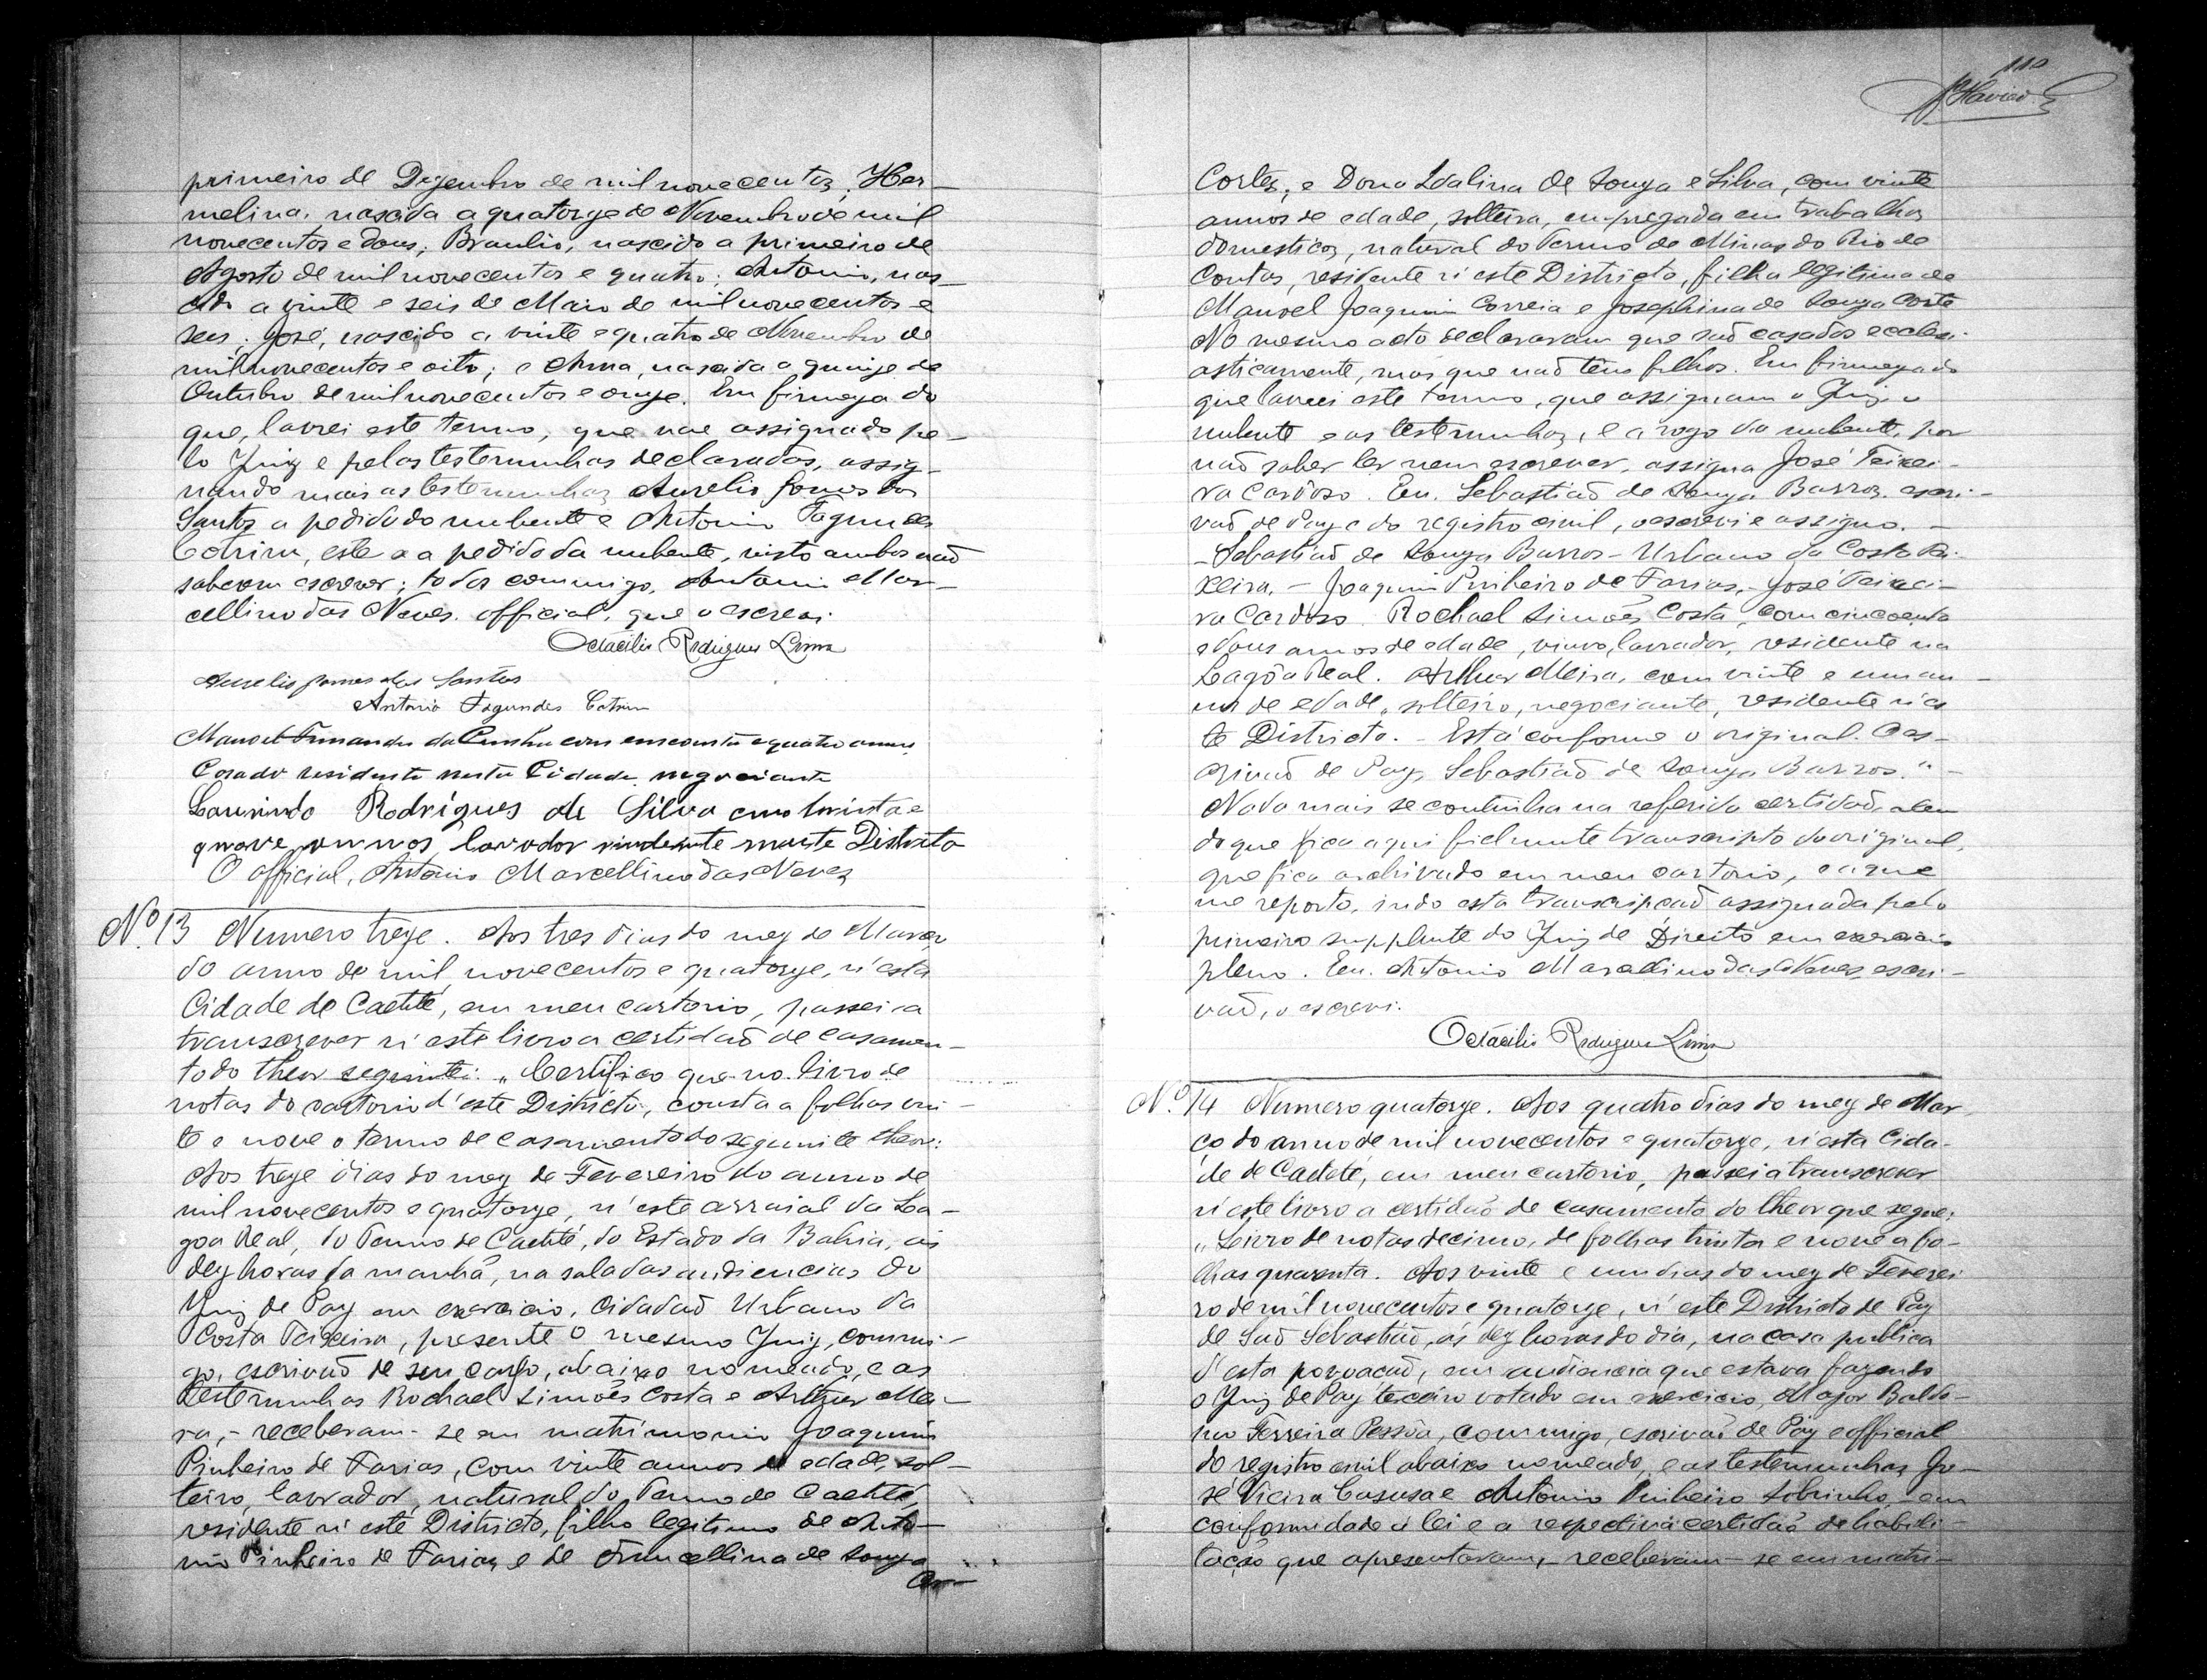 primeiro de Dezembro de mil novecentos; Her-
melina, nascida a quatorze de Novembro de mil
novecentos e dous; Braulio, nascido a primeiro de
Agosto de mil novecentos e quatro; Antonio, nas-
cido a vinte e seis de Maio de mil novecentos e
seis; José, nascido a vinte e quatro de Novembro de
mil novecentos e oito; e Anna, nascida a quinze de
Outubro de mil novecentos e onze. Em firmeza do
que, lavrei este termo, que vae assignado pe-
lo Juiz e pelas testemunhas declaradas, assig-
nando mais as testemunhas Aurelio Gomes dos
Santos a pedido do nubente e Antonio Fagundes
Cotrim, este a a pedido da nubente, visto ambos naõ
saberem escrever; todos commigo, Antonio Mar-
cellino das Neves, official, que o escrevi.
Octacilio Rodrigues Lima
Aurelio Gomes dos Santos
Antonio Fagundes Cotrim
Manoel Fernandes da Cunha com cincoenta e quatro annos
Casado residente nesta Cidade negociante
Laurindo Rodrigues da Silva com trinta e
nove annos lavrador residente neste Districto
O official, Antonio Marcellino das Neves
Nº 13 Numero treze. Aos tres dias do mez de Março
do anno de mil novecentos e quatorze, n'esta
Cidade de Caetité, em meu cartorio, passei a
transcrever n'este livro a certidaõ de casamen-
to do theor seguinte: "Certifico que no livro de
notas do cartorio d'este Districto, consta a folhas vin-
te e nove o termo de casamento do seguinte theor:
Aos treze dias do mez de Fevereiro do anno de
mil novecentos e quatorze, n'este arraial da La-
goa Real, do Termo de Caetité, do Estado da Bahia, ás
dez horas da manhã, na sala das audiencias do
Juiz de Paz em exercicio, cidadaõ Urbano da
Costa Teixeira, presente o mesmo Juiz, commi-
go, escrivaõ de seu cargo, abaixo nomeado, e as
testemunhas Rochael Simões Costa e Arthur Mei-
ra, - receberam-se em matrimonio Joaquim
Pinheiro de Farias, com vinte annos de edade, sol-
teiro, lavrador, natural do Termo de Caetité,
residente n'este Districto, filho legitimo de Anto-
nio Pinheiro de Farias e de Francellina de Souza
110
Cortes; e Dona Idalina de Souza e Silva, com vinte
annos de edade, solteira, empregada em trabalhos
domesticos, natural do Termo de Minas do Rio de
Contas, residente n'este Districto, filha legitima de
Manoel Joaquim Correia e Josephina de Souza Corte
No mesmo acto declararam que saõ casados ecclesi-
asticamente, mas que naõ têm filhos. Em firmeza do
que lavrei este termo, que assignam o Juiz o
nubente e as testemunhas, e a rogo da nubente, por
naõ saber ler nem escrever, assigna José Teixei-
ra Cardoso. Eu, Sebastiaõ de Souza Barros, escri-
vaõ de Paz e do registro civil, o escrevi e assigno. -
- Sebastiaõ de Souza Barros - Urbano da Costa Tei-
xeira. - Joaquim Pinheiro de Farias. - José Teixei-
ra Cardoso. Rochael Simões Costa, com cincoenta
e dous annos de edade, viuvo, lavrador, residente na
Lagôa Real. Arthur Meira, com vinte e um an-
nos de edade, solteiro, negociante, residente n'es
te Districto. - Está conforme o original. O es-
crivaõ de Paz, Sebastiaõ de Souza Barros." -
Nada mais se continha na referida certidaõ, alem
do que fica aqui fielmente transcripto do original,
que fica archivado em meu cartorio, e a que
me reporto, indo esta transcripçaõ assignada pelo
primeiro supplente do Juiz de Direito em exercicio
pleno. Eu, Antonio Marcellino das Neves, escri-
vaõ, o escrevi.
Octacilio Rodrigues Lima
Nº 14 Numero quatorze. Aos quatro dias do mez de Mar-
ço do anno de mil novecentos e quatorze, n'esta Cida-
de de Caeteté, em meu cartorio, passei a transcrever
n'este livro a certidaõ de casamento do theor que segue:
"Livro de notas decimo, de folhas trinta e nove a fo-
lhas quarenta. Aos vinte e um dias do mez de Feverei
ro de mil novecentos e quatorze, n'este Districto de Paz
de Saõ Sebastiaõ, ás dez horas do dia, na casa publica
d'esta povoaçaõ, em audiencia que estava fazendo
o Juiz de Paz terceiro votado em exercicio, Major Baldo-
ino Ferreira Pessôa, commigo, escrivaõ de Paz e official
do registro civil abaixo nomeado, e as testemunhas Jo-
sé Vieira Casusa e Antonio Pinheiro Sobrinho, - em
conformidade á lei e a respectiva certidaõ de habili-
tação que apresentaram, - receberam-se em matri-